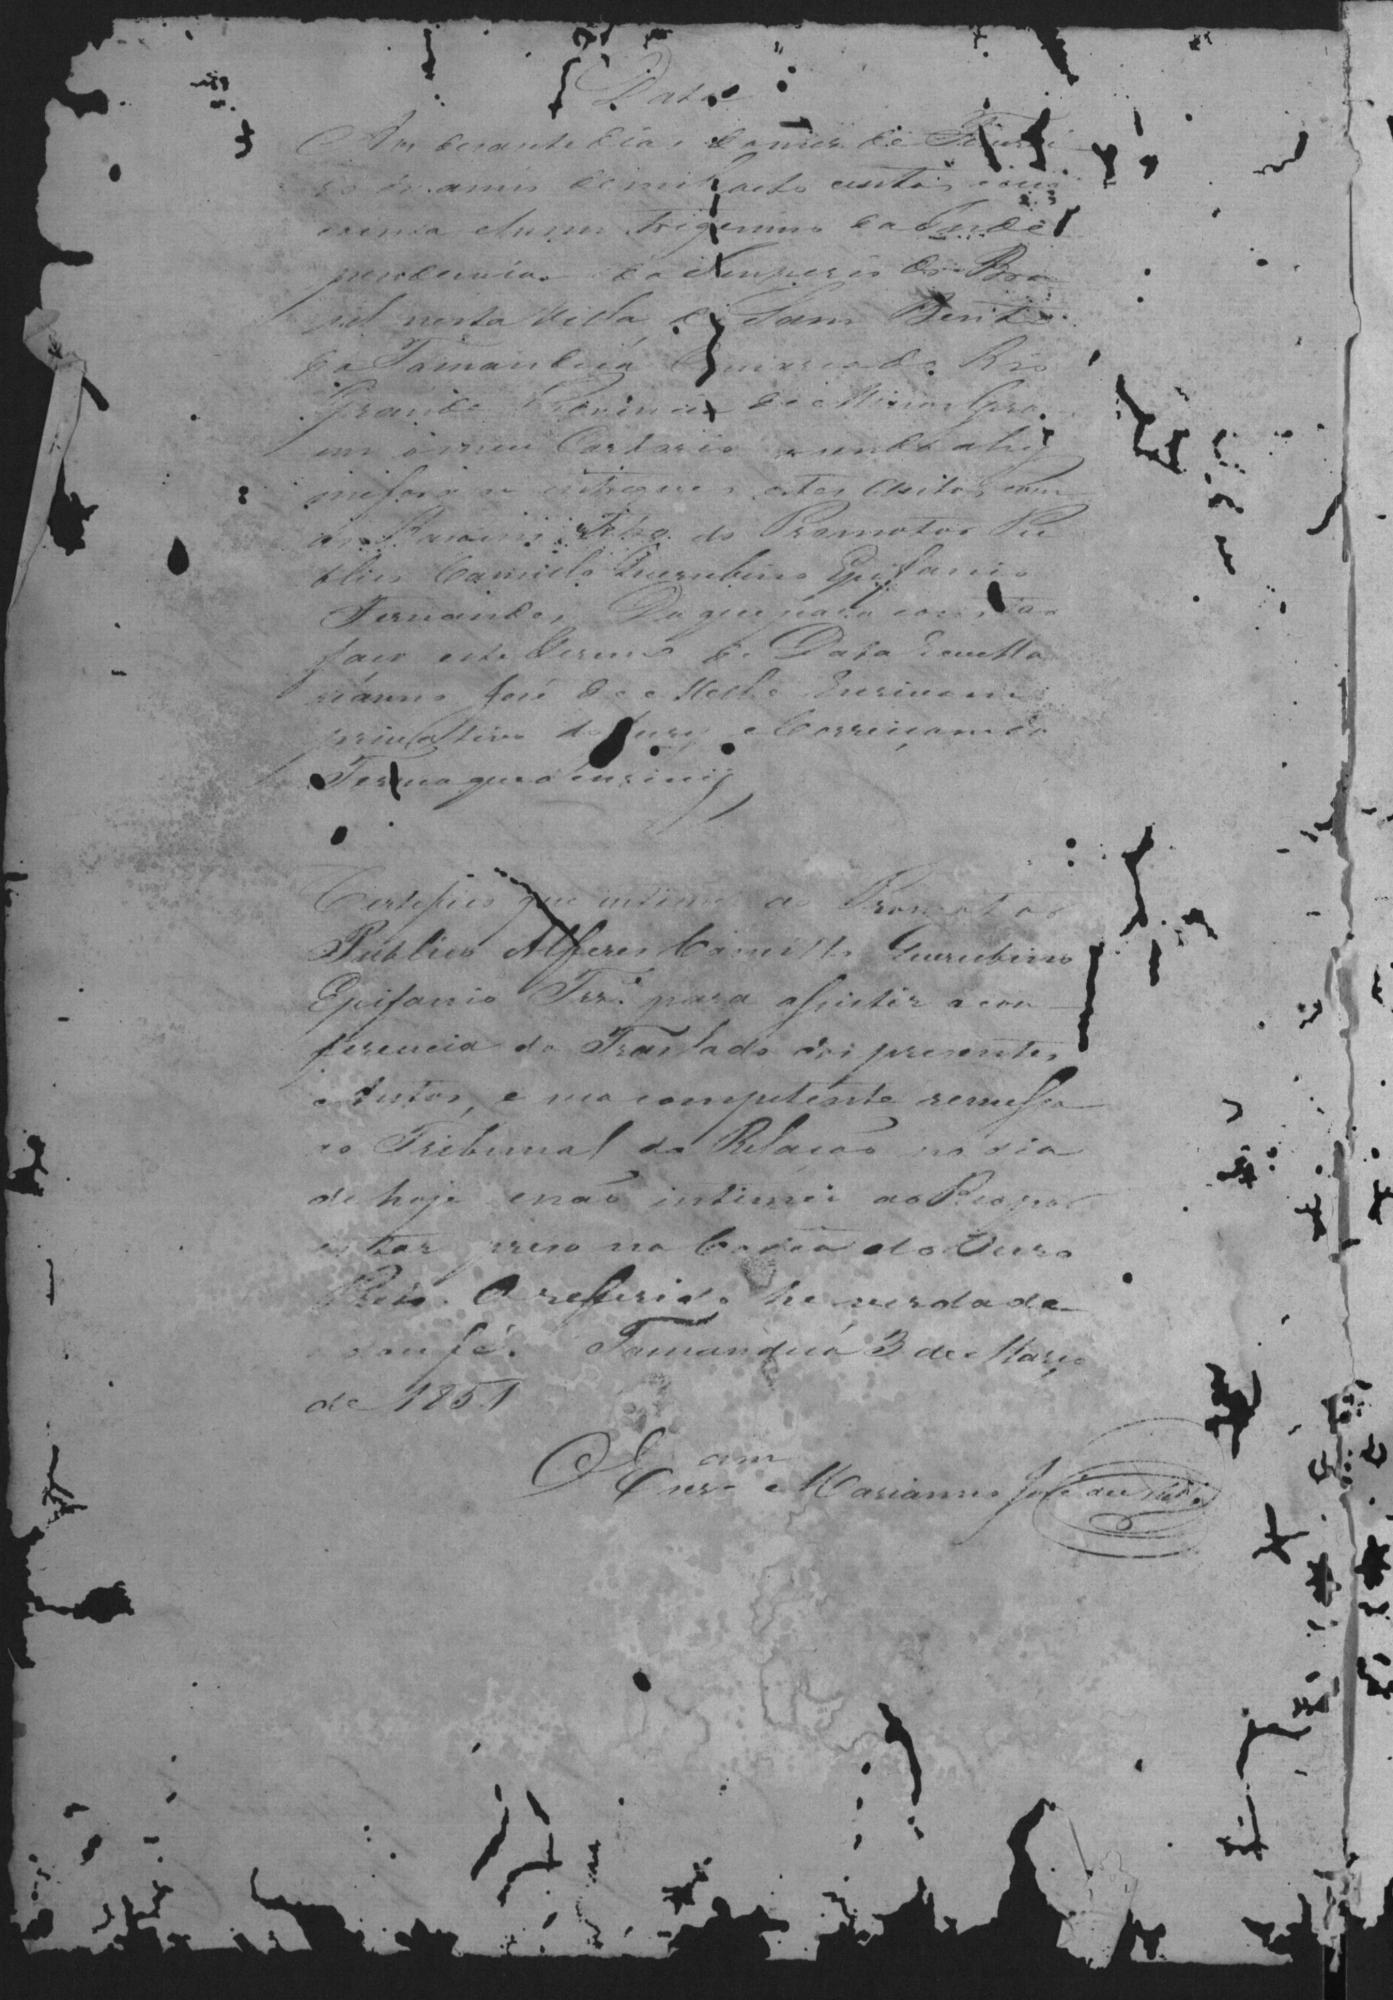 Data
Aos desante dias do mes de Feverei
ro do anno de mil oito centos e cin
coenta e hum trigesimo da Inde
pendencia e do Imperio do Bra
zil nesta Villa de Sam Bento
do Tamanduá Comarca do Rio
Grande Provincia de Minas Gera
em o meu Cartorio sendo ahi
me forão entregues estes Autos com
as Razoens do Promotor Pu
blico Camilo Querubino Epifanio
Fernandes Do que para constar
faço este termo de Data Eu Ma
rianno José de Mello Escrivam
privativo do Jury e Correiçam do
Termo que o escrevi
Certefico que intimei ao Promotor
Publico Alferes Camillo Querubino
Epifanio Frz. para assistir a con
ferencia do Traslado dos presentes
Autos, e sua competente remessa
ao Tribunal da Relação no dia
de hoje e não intimei ao Reo por
estar preso na Cadea do Ouro
Preto. O referido he verdade
e dou fé. Tamanduá 3 de Março
de 1851
O Escram Marianno José de Mello